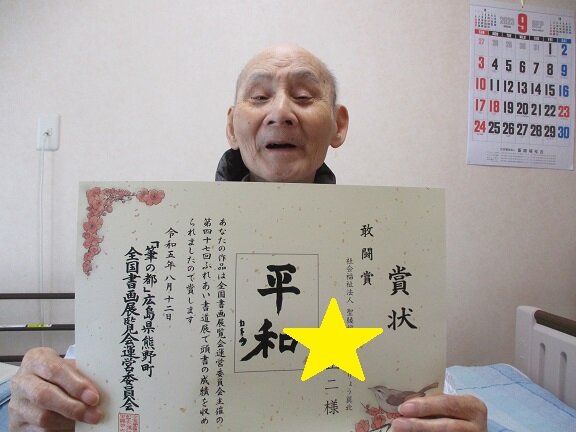 賞状
敢闘賞
社会福祉法人 聖
二様
平和
あなたの作品は全国書画展覧会運営委員会主催の
第四十七回ふれあい書道展で頭書の成績を収め
られましたので賞します
令和五年八月十二日
「筆の都」広島県熊野町
全国書画展覧会運営委員会
2023 9 SEP
27 28 29 30 31 1 2
3 4 5 6 7 8 9
10 11 12 13 14 15 16
17 18 19 20 21 22 23
24 25 26 27 28 29 30